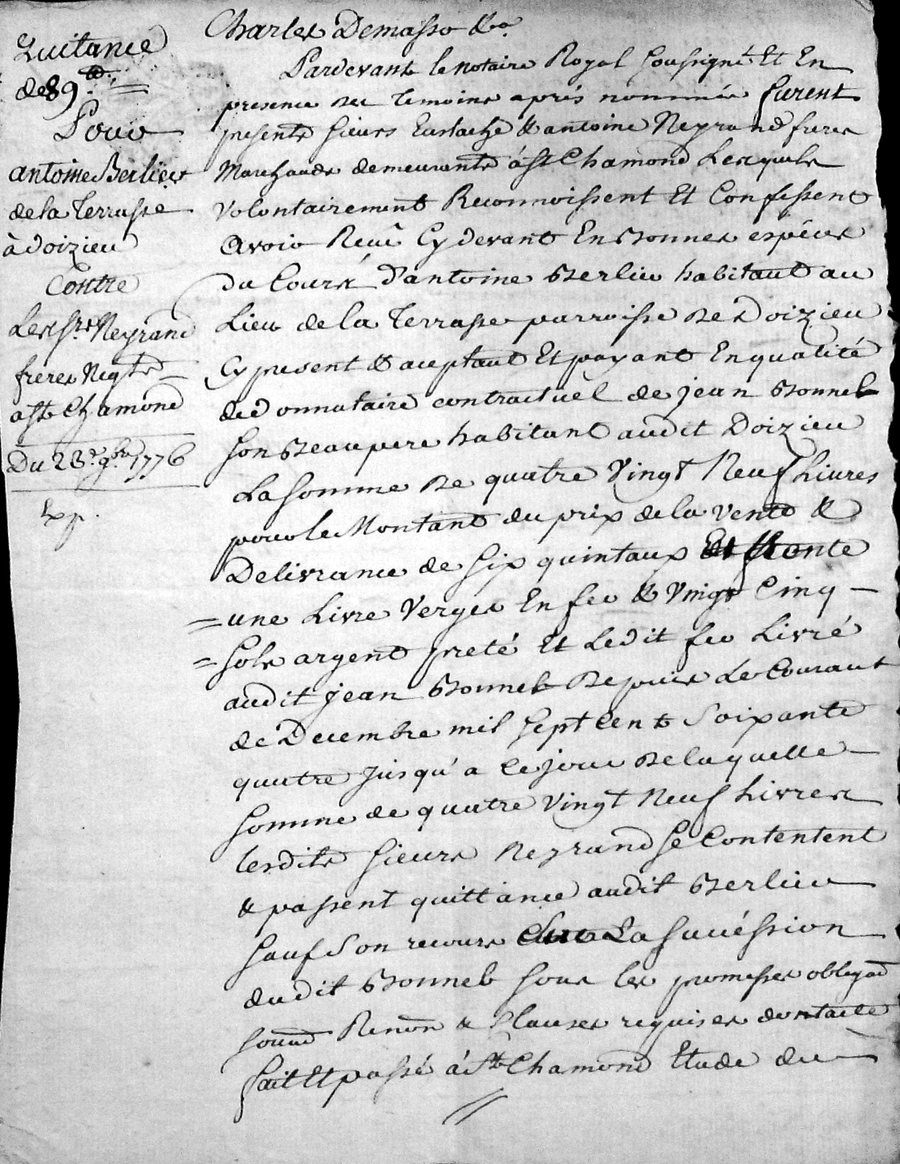 Quitance
de 89 #
Pour
antoine Berlier
de la Terrasse
à doizieu
Contre
Les srs Neyrand
freres Negts
a st Chamond
Du 23e 9bre 1776
Exp.
Charles Demasso &a
Pardevant le notaire Royal Soussigné Et En
presence des Temoins aprés nommés furent
presents sieurs Eustache & antoine Neyrand freres
Marchands demeurants á st Chamond Lesquels
volontairement Reconnoissent Et Confessent
avoir Reçû Cy devant En bonnes espéces
du Cours D'antoine Berlier habitant au
Lieu de la Terrasse parroisse de Doizieu
Cy present & aceptant Et payant En qualité
de donnataire contractuel de jean Bonnel
son beaupere habitant audit Doizieu
La somme de quatre vingt neuf Livres
pour le Montant du prix de la vente &
Delivrance de six quintaux Et trente
= une Livre verges En fer & vingt Cinq
= sols argent preté Et Ledit fer Livré
audit jean Bonnel depuis Le Courant
de Decembre mil sept Cent soixante
quatre jusqu'a Ce jour de laquelle
somme de quatre vingt neuf Livres
lesdits sieurs Neyrand se Contentent
& passent quittance audit Berlier
sauf son recours sur La succéssion
dudit Bonnel sous les promesses obligaõ
soumõ Renõn & Clauses requises dont acte
fait Et passé á st Chamond Etude du